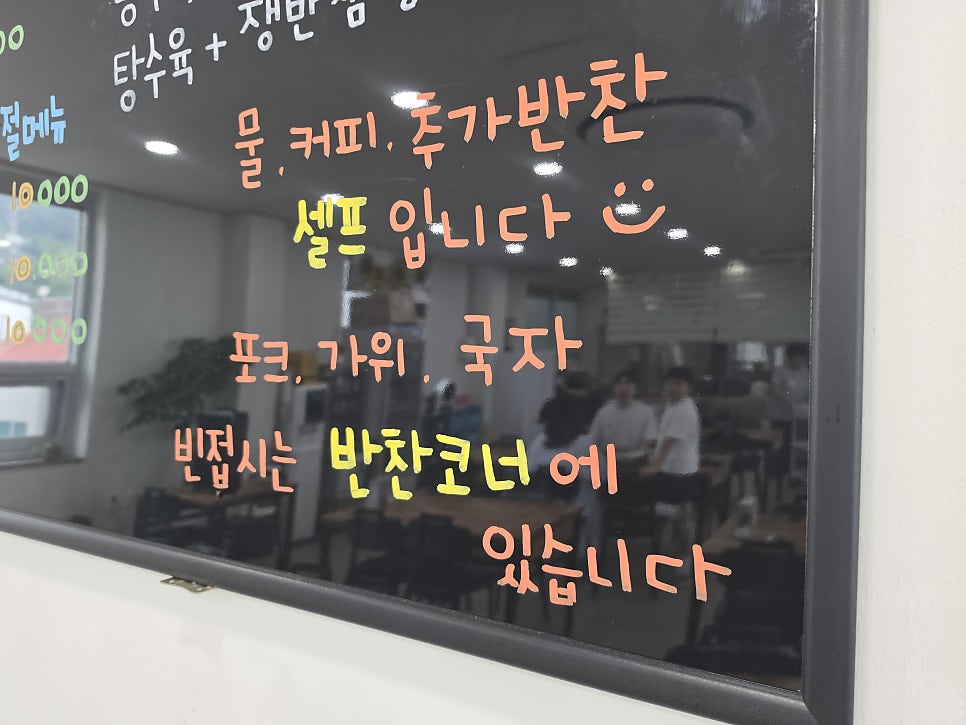 탕수육 + 쟁반짬
절메뉴
10000
10.000
10.000
물.커피.추가반찬
셀프 입니다
포크. 가위. 국자
빈접시는 반찬코너에
있습니다